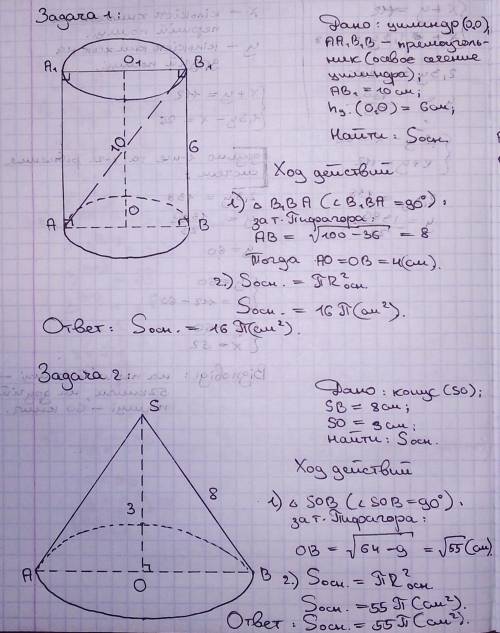 Задача 1:
Дано: цилиндр (O₁O);
AA₁B₁B – прямоуголь-
ник (осевое сечение
цилиндра);
AB₁ = 10 см;
hц. (O₁O) = 6 см;
Найти: Sосн.
A₁ O₁ B₁
10
6
A O B
Ход действий
1) △ B₁BA (∠ B₁BA = 90°),
за т. Пифагора:
AB = √100 – 36 = 8
Тогда AO = OB = 4 (см).
2.) Sосн. = πR²осн.
Sосн. = 16π (см²).
Ответ: Sосн. = 16π (см²).
Задача 2:
Дано: конус (SO);
SB = 8 см;
SO = 3 см;
Найти: Sосн.
S
3
8
A O B
Ход действий
1) △ SOB (∠ SOB = 90°),
за т. Пифагора:
OB = √64 – 9 = √55 (см)
2) Sосн. = πR²осн.
Sосн. = 55π (см²).
Ответ: Sосн. = 55π (см²).